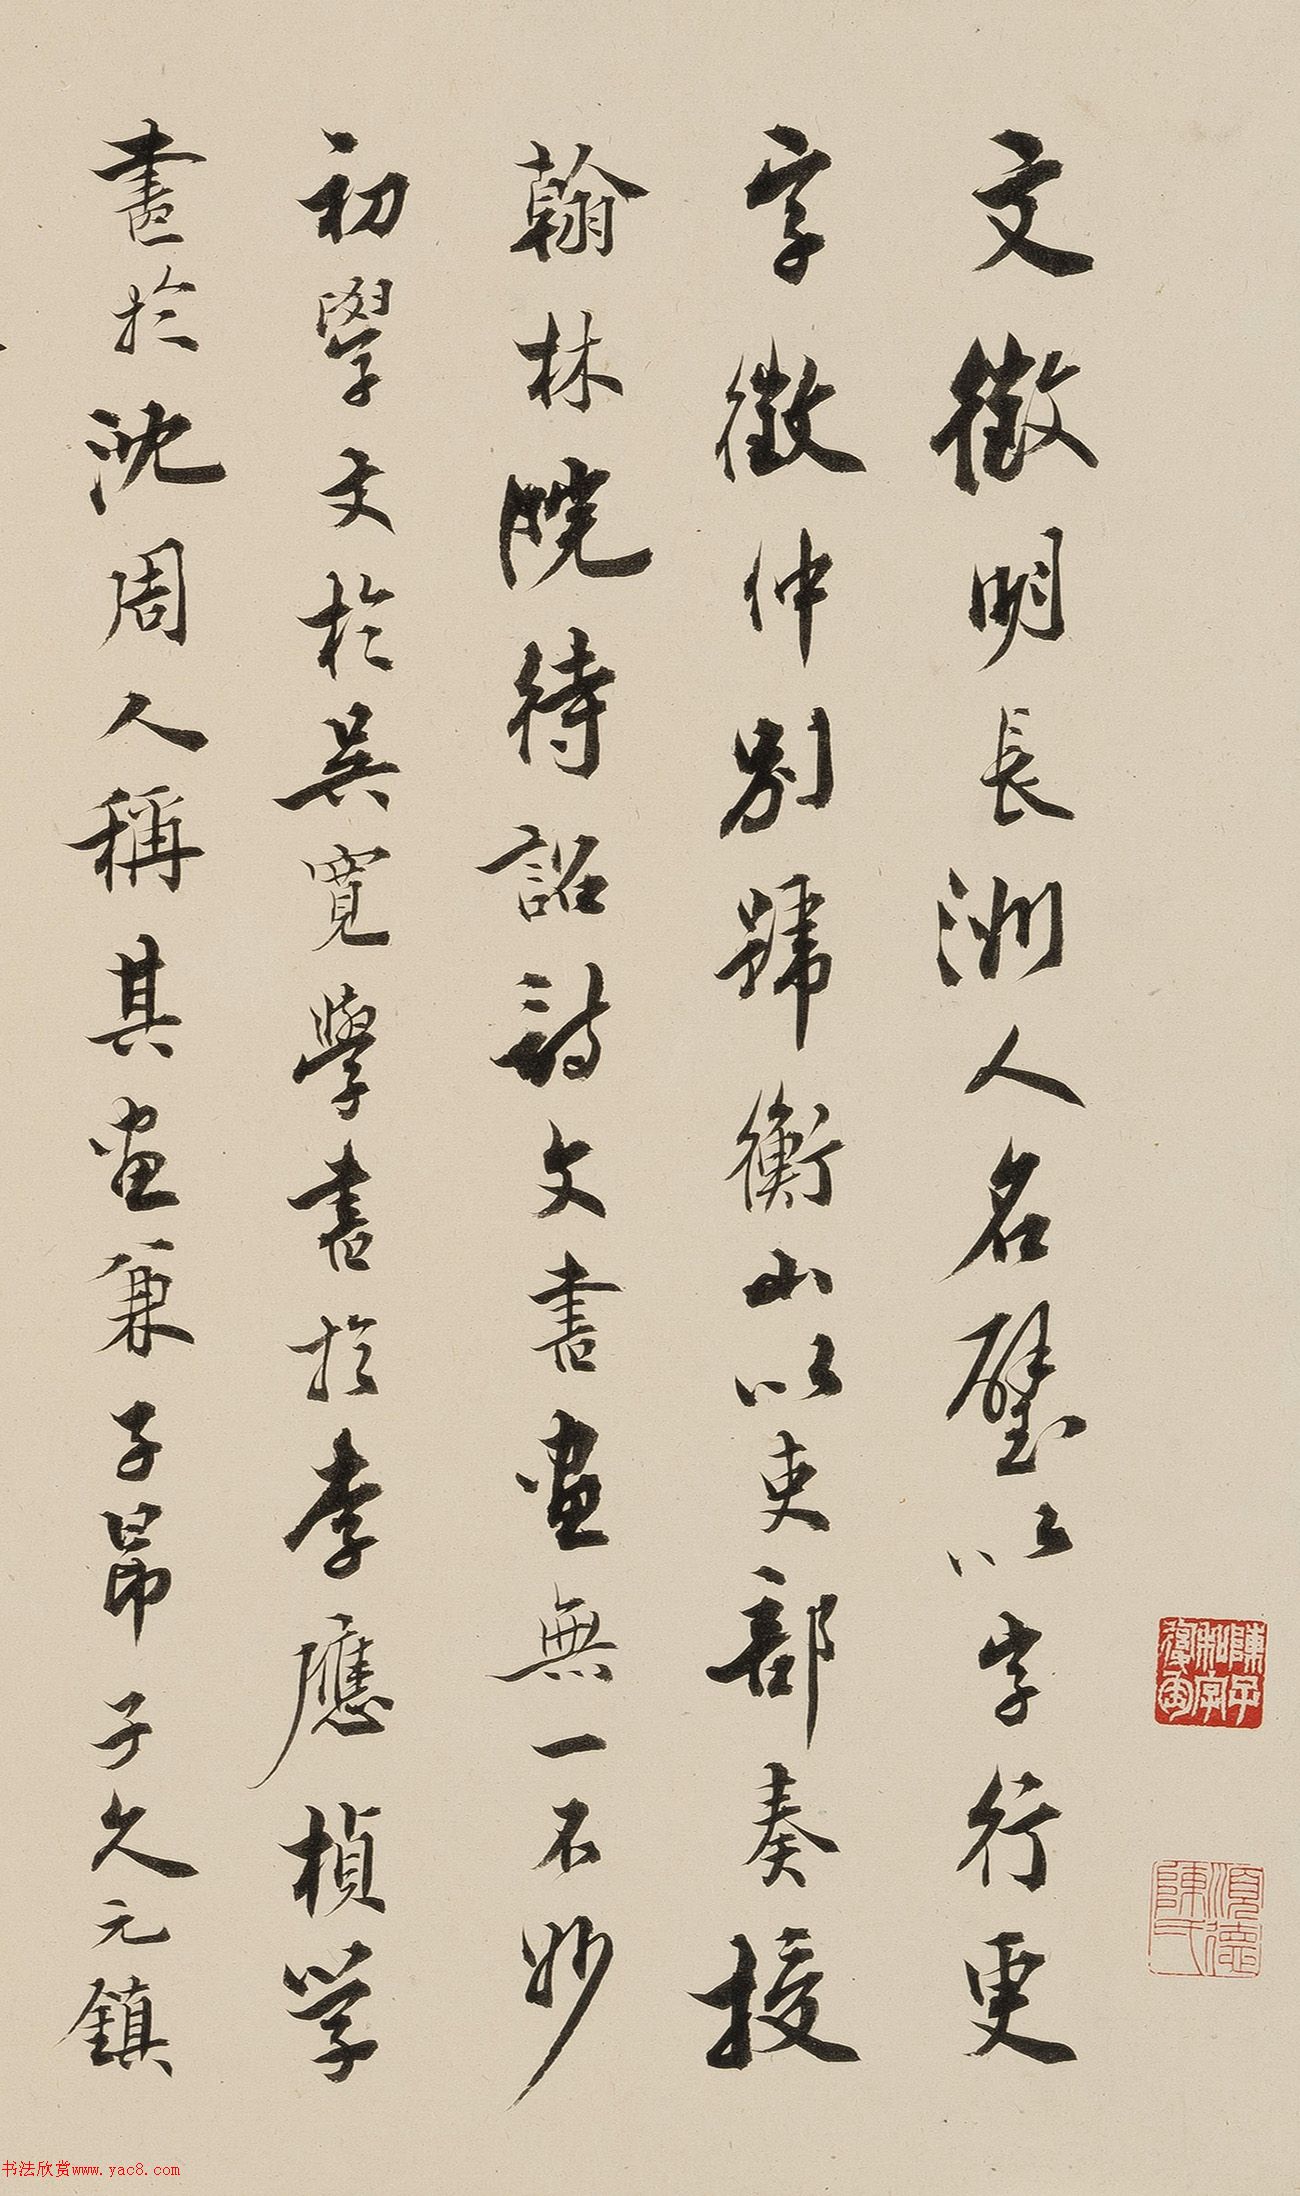 文徵明長洲人名璧以字行更
字徵仲別號衡山以吏部奏授
翰林院待詔詩文書畫無一不妙
初學文於吳寬學書於李應楨学
畫於沈周人稱其畫兼子昂子久元鎮
陳氏
順德
书法欣赏www.yac8.com